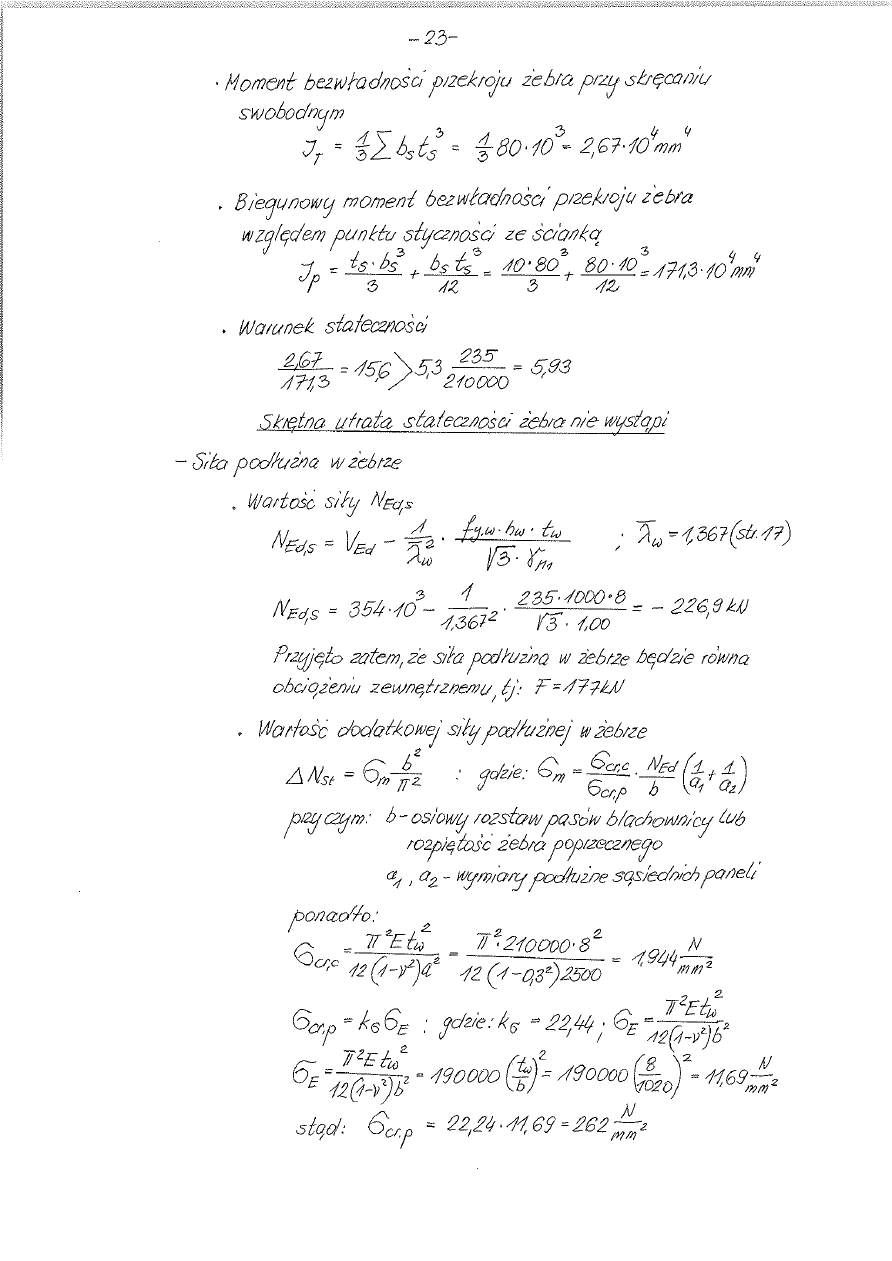 -23-
· Moment bezwładności przekroju żebra przy skręcaniu
swobodnym
J_T = 1/3 Σ b_s t_s^3 = 1/3 80·10^3 = 2,67·10^4 mm^4
. Biegunowy moment bezwładności przekroju żebra
względem punktu styczności ze ścianką
J_p = t_s·b_s^3/3 + b_s t_s^3/12 = 10·80^3/3 + 80·10^3/12 = 171,3·10^4 mm^4
. Warunek stateczności
2,67/171,3 = 15,6 > 5,3 235/210000 = 5,93
Skrętna utrata stateczności żebra nie wystąpi
- Siła podłużna w żebrze
. Wartość siły N_Ed,s
N_Ed,s = V_Ed - 1/λ̄_w^2 · f_y,w·h_w·t_w/(√3·γ_M1) ; λ̄_w = 1,367 (str. 17)
N_Ed,s = 354·10^3 - 1/1,367^2 · 235·1000·8/(√3·1,00) = - 226,9 kN
Przyjęto zatem, że siła podłużna w żebrze będzie równa
obciążeniu zewnętrznemu, tj: F = 177kN
. Wartość dodatkowej siły podłużnej w żebrze
ΔN_st = σ_m b^2/π^2 : gdzie: σ_m = σ_cr,c/σ_cr,p · N_Ed/b (1/a_1 + 1/a_2)
przy czym: b - osiowy rozstaw pasów blachownicy lub
rozpiętość żebra poprzecznego
a_1, a_2 - wymiary podłużne sąsiednich paneli
ponadto:
σ_cr,c = π^2 E t_w^2/(12(1-ν^2)a^2) = π^2·210000·8^2/(12(1-0,3^2)2500) = 1,944 N/mm^2
σ_cr,p = k_σ σ_E : gdzie: k_σ = 22,44 ; σ_E = π^2 E t_w^2/(12(1-ν^2)b^2)
σ_E = π^2 E t_w^2/(12(1-ν^2)b^2) = 190000 (t_w/b)^2 = 190000 (8/1020)^2 = 11,69 N/mm^2
stąd: σ_cr,p = 22,24·11,69 = 262 N/mm^2